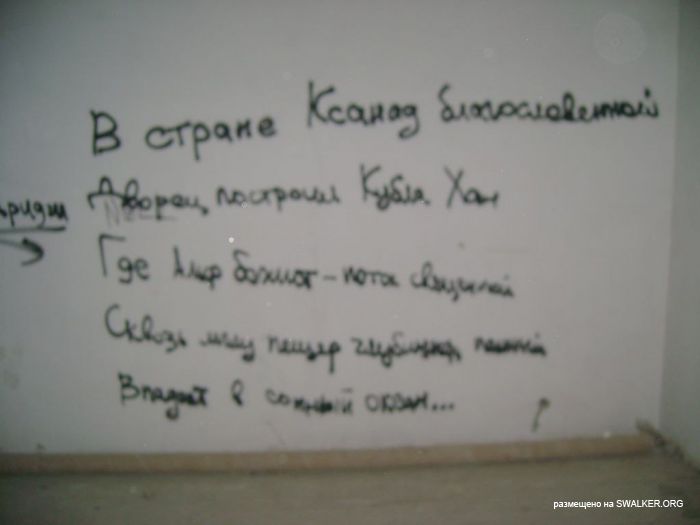 В стране Ксанад благословенной
Дворец построил Кубла Хан
Где Альф бежит - поток священный
Сквозь мглу пещер гигантских, пенный
Впадает в сонный океан...
размещено на SWALKER.ORG